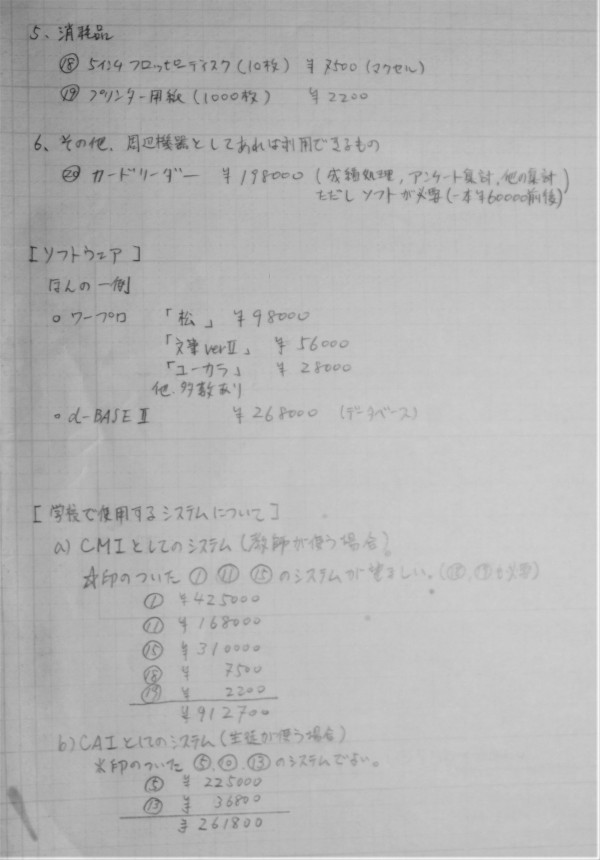 5、消耗品
⑱ 5インチフロッピーディスク(10枚) ¥7500(マクセル)
⑲ プリンター用紙(1000枚) ¥2200
6、その他、周辺機器としてあれば利用できるもの
⑳ カードリーダー ¥198000 (成績処理，アンケート集計，他の集計)
ただし ソフトが必要(一本¥60000前後)
[ソフトウェア]
ほんの一例
○ ワープロ 「松」 ¥98000
「文筆verⅡ」 ¥56000
「ユーカラ」 ¥28000
他、多数あり
○ d-BASEⅡ ¥268000 (データベース)
[学校で使用するシステムについて]
a) CMIとしてのシステム(教師が使う場合)
☆印のついた ① ⑪ ⑮ のシステムが望ましい。(⑱、⑲も必要)
① ¥425000
⑪ ¥168000
⑮ ¥310000
⑱ ¥ 7500
⑲ ¥ 2200
¥912700
b) CAIとしてのシステム(生徒が使う場合)
※印のついた ⑤、⑬ のシステムでよい。
⑤ ¥225000
⑬ ¥36800
¥261800